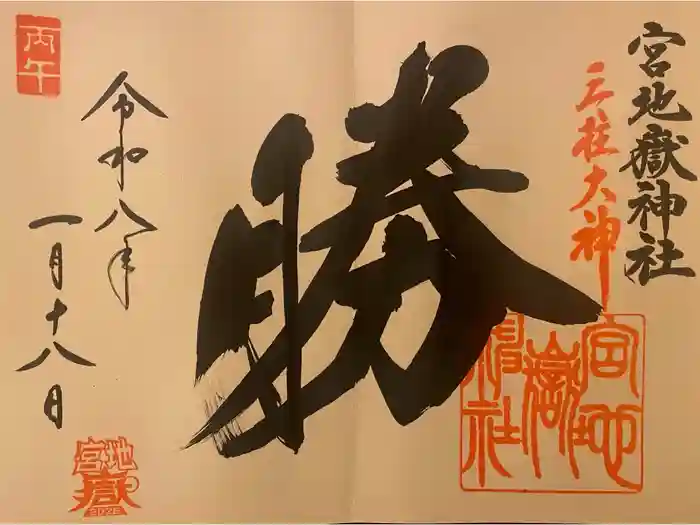 宮地嶽神社
三柱大神
勝
宮地
嶽
神社
令和八年
一月十八日
丙午
宮地
嶽
2026